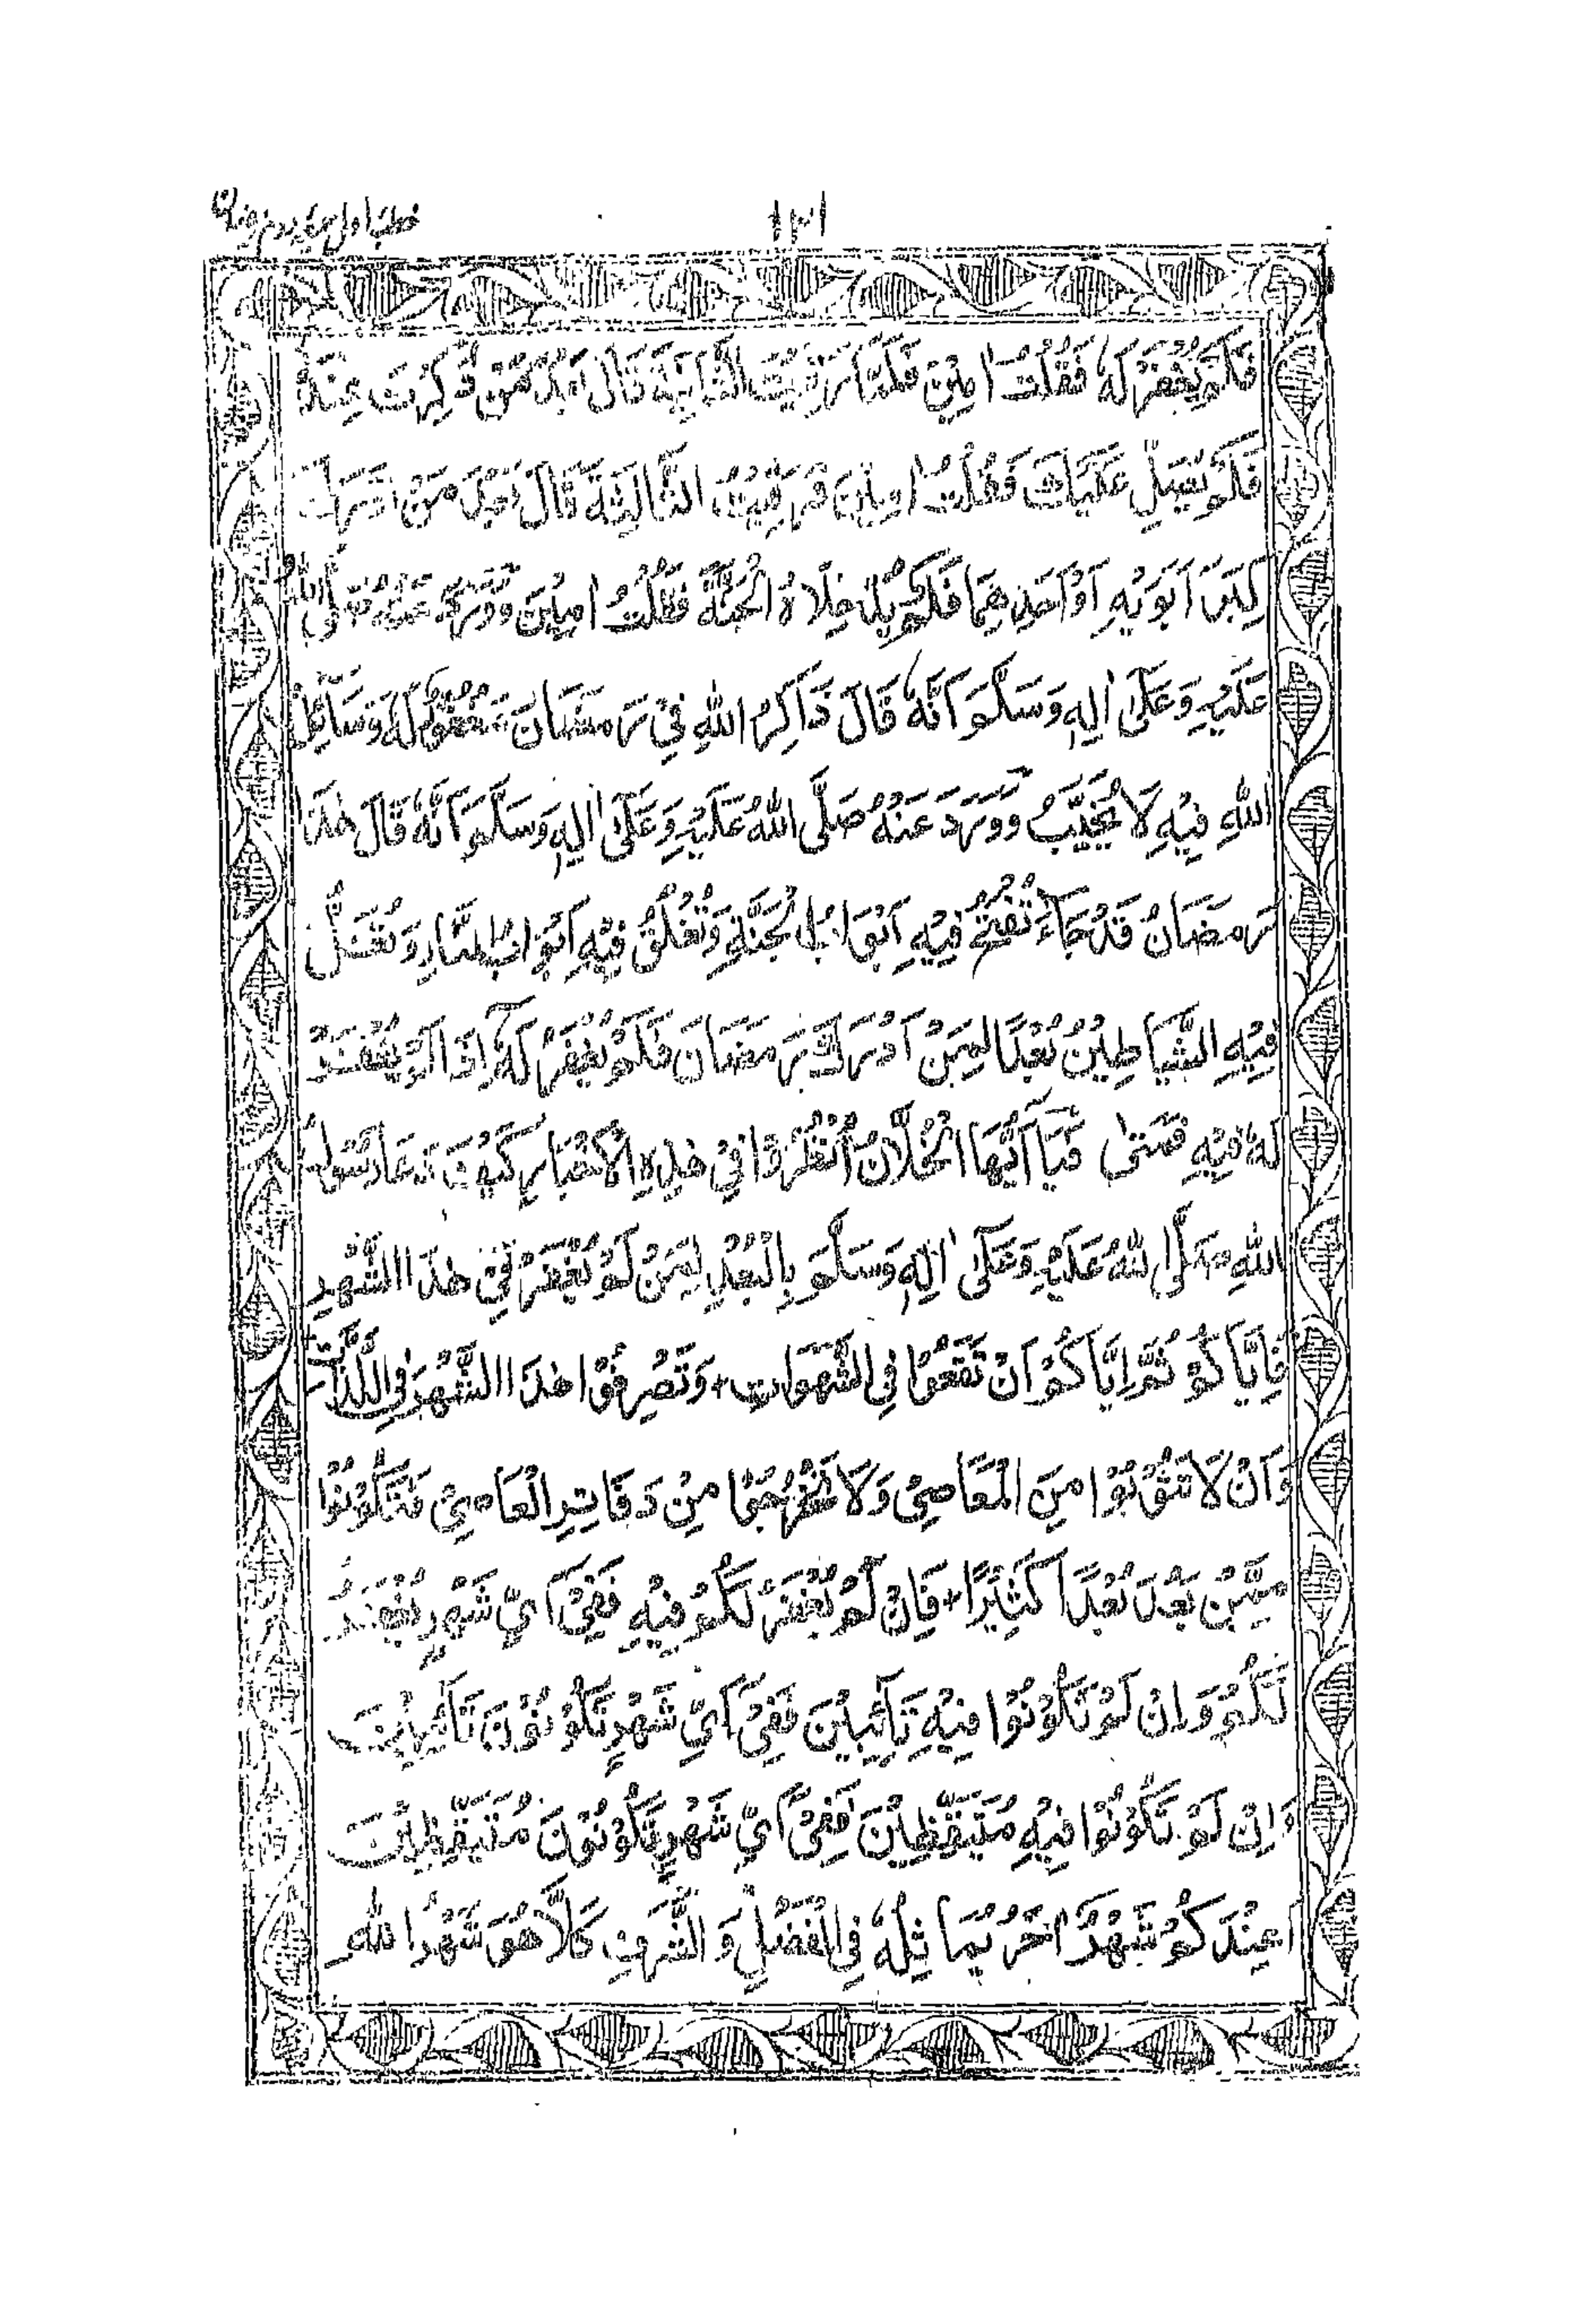 ١٣١
خطبۂ اول
فَلَمْ يُغْفَرْ لَهٗ فَقُلْتُ اٰمِيْن فَلَمَّا رَقِيْتُ الثَّانِيَةَ قَالَ بَعُدَ مَنْ ذُكِرْتَ عِنْدَهٗ
فَلَمْ يُصَلِّ عَلَيْكَ فَقُلْتُ اٰمِيْن فَرَقِيْتُ الثَّالِثَةَ قَالَ بَعُدَ مَنْ اَدْرَكَ
كِبَرَ اَبَوَيْهِ اَوْ اَحَدِهِمَا فَلَمْ يُدْخِلَاهُ الْجَنَّةَ فَقُلْتُ اٰمِيْن وَوَرَدَ عَنْهُ صَلَّى اللهُ
عَلَيْهِ وَعَلٰى اٰلِهٖ وَسَلَّمَ اَنَّهٗ قَالَ ذَاكِرُ اللهِ فِيْ رَمَضَانَ مَغْفُوْرٌ لَهٗ وَسَائِلُ
اللهِ فِيْهِ لَا يُخَيَّبُ وَوَرَدَ عَنْهُ صَلَّى اللهُ عَلَيْهِ وَعَلٰى اٰلِهٖ وَسَلَّمَ اَنَّهٗ قَالَ هٰذَا
رَمَضَانُ قَدْ جَآءَ تُفْتَحُ فِيْهِ اَبْوَابُ الْجَنَّةِ وَتُغْلَقُ فِيْهِ اَبْوَابُ النَّارِ وَتُغَلُّ
فِيْهِ الشَّيَاطِيْنُ بُعْدًا لِمَنْ اَدْرَكَ رَمَضَانَ فَلَمْ يُغْفَرْ لَهٗ اِذَا لَمْ يُغْفَرْ
لَهٗ فِيْهِ فَمَتٰى فَيَآ اَيُّهَا الْخُلَّانُ اُنْظُرُوْا فِيْ هٰذِهِ الْاَخْبَارِ كَيْفَ دَعَا رَسُوْلُ
اللهِ صَلَّى اللهُ عَلَيْهِ وَعَلٰى اٰلِهٖ وَسَلَّمَ بِالْبُعْدِ لِمَنْ لَمْ يُغْفَرْ فِيْ هٰذَا الشَّهْرِ
فَاِيَّاكُمْ ثُمَّ اِيَّاكُمْ اَنْ تَقَعُوْا فِي الشَّهَوَاتِ وَتَصْرِفُوْا هٰذَا الشَّهْرَ فِي اللَّذَّاتِ
وَاَنْ لَا تَتُوْبُوْا مِنَ الْمَعَاصِيْ وَلَا تَخْرُجُوْا مِنْ دَفَاتِرِ الْعَاصِيْ فَتَكُوْنُوْا
مِمَّنْ بَعُدَ بُعْدًا كَثِيْرًا فَاِنْ لَمْ يُغْفَرْ لَكُمْ فِيْهِ فَفِيْ اَيِّ شَهْرٍ يُغْفَرُ
لَكُمْ وَاِنْ لَمْ تَكُوْنُوْا فِيْهِ تَآئِبِيْنَ فَفِيْ اَيِّ شَهْرٍ تَكُوْنُوْنَ تَآئِبِيْنَ
وَاِنْ لَمْ تَكُوْنُوْا فِيْهِ مُتَيَقِّظِيْنَ فَفِيْ اَيِّ شَهْرٍ تَكُوْنُوْنَ مُتَيَقِّظِيْنَ
اَعِنْدَكُمْ شَهْرٌ اٰخَرُ يُمَاثِلُهٗ فِي الْفَضْلِ وَالشَّرَفِ كَلَّا هُوَ شَهْرُ اللهِ